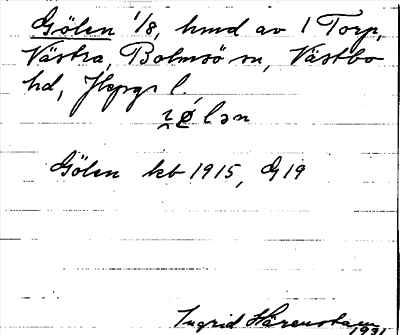 Gölen 1/8, hmd av 1 Torp,
Västra, Bolmsö sn, Västbo
hd, Jkpgs l.
Gölen kb 1915, G 19
Ingrid Härenstam
1931